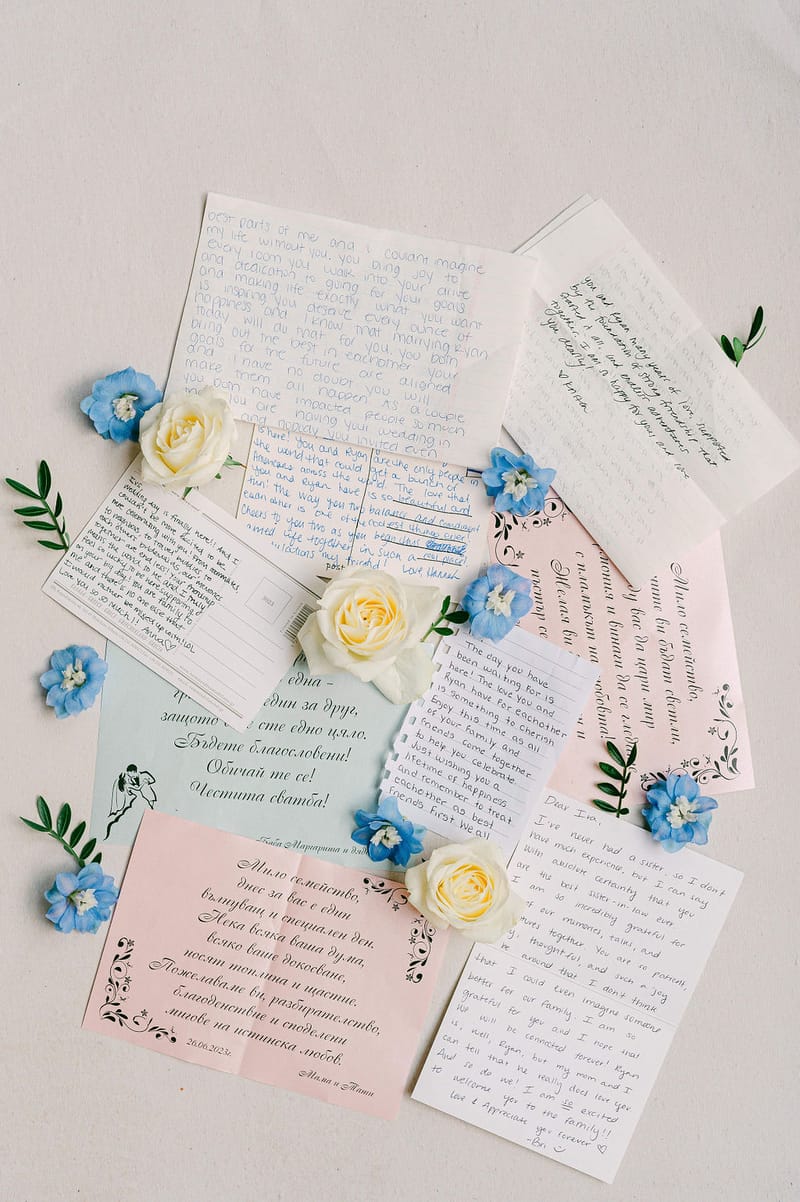 best parts of me and I couldnt imagine
my life without you. You bring joy to
every room you walk into your drive
and dedication to going for your goals
and making life exactly what you want
is inspiring you deserve every ounce of
happiness and I know that marrying Ryan
today will do that for you. You both
bring out the best in eachother your
goals for the future are aligned
and I have no doubt you will
make them all happen. As a couple
you both have impacted people so much
you are having your wedding in
and nobody you invited even
you and Ryan many years of fun, supported
by the foundation of strong friendship that
started it all, and endless adventures
together. I am so happy for you, and love
you dearly,
is here! You and Ryan are the only people
the world that could get a bunch of
Americans across the world. The love that
you and Ryan have is so beautiful and
fun! The way you two balance and compliment
eachother is one of the coolest things ever.
Cheers to you two as you begin this
married life together in such a real place!
my friend! Love Hannah
post
wedding day is finally here!! And I
couldn't be more excited to be
here celebrating with you! From roommates
to neighbors to travel buddies to
each others bridesmaids our memories
together are endless! Your friendship
means the world to me and I truly
feel so lucky to be here supporting
you on your big day. You are family to
me and there's no one else that
I would rather be mixed up with! LOL
Love you so so much!! Anna♡
една -
един за друг,
защото сте едно цяло.
Бъдете благословени!
Обичай те се!
Честита сватба!
Баба Маргарита и дядо
The day you have
been waiting for is
here! The love you and
Ryan have for eachother
is something to cherish
Enjoy this time as all
of your family and
friends come together
to help you celebrate
Just wishing you a
lifetime of happiness
and remember to treat
eachother as best
friends first. We all
Мило семейство,
ите ви бъдат светли,
ду вас да цари мир
и винаги да се
с пламъкът на любовта!
Желая ви
Мило семейство,
днес за вас е един
вълнуващ и специален ден.
Нека всяка ваша дума,
всяко ваше докосване,
носят топлина и щастие.
Пожелаваме ви, разбирателство,
благоденствие и споделени
мигове на истинска любов.
26.06.2023г.
Мама и Тати
Dear Iva,
I've never had a sister, so I don't
have much experience, but I can say
with absolute certainty that you
are the best sister-in-law ever.
I am so incredibly grateful for
of our memories, talks, and
together. You are so patient,
thoughtful, and such a joy
be around that I don't think
that I could even imagine someone
better for our family. I am so
grateful for you and I hope that
we will be connected forever! Ryan
is, well, Ryan, but my mom and I
can tell that he really does love you
And so do we! I am so excited
to welcome you to the family!!
Love & Appreciate you forever ♡
-Bri